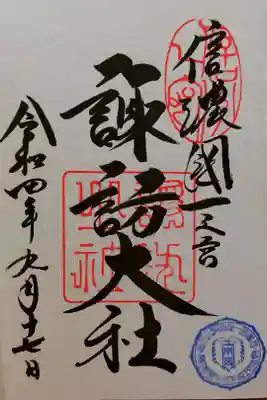 信濃國一之宮
諏訪大社
令和四年九月十七日